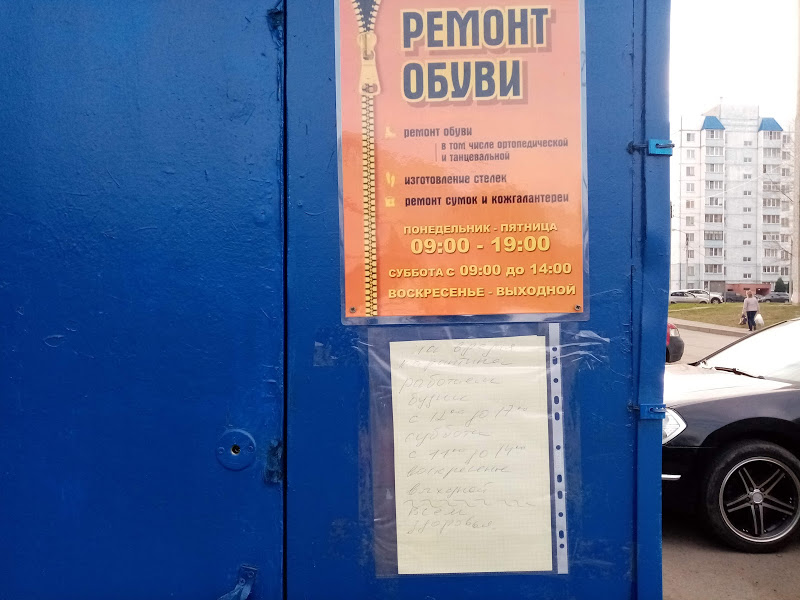 РЕМОНТ
ОБУВИ
ремонт обуви
в том числе ортопедической
и танцевальной
изготовление стелек
ремонт сумок и кожгалантереи
ПОНЕДЕЛЬНИК - ПЯТНИЦА
09:00 - 19:00
СУББОТА С 09:00 ДО 14:00
ВОСКРЕСЕНЬЕ - ВЫХОДНОЙ
карантина
работаем
будни
суббота
воскресенье
выходной
Всем
здоровья